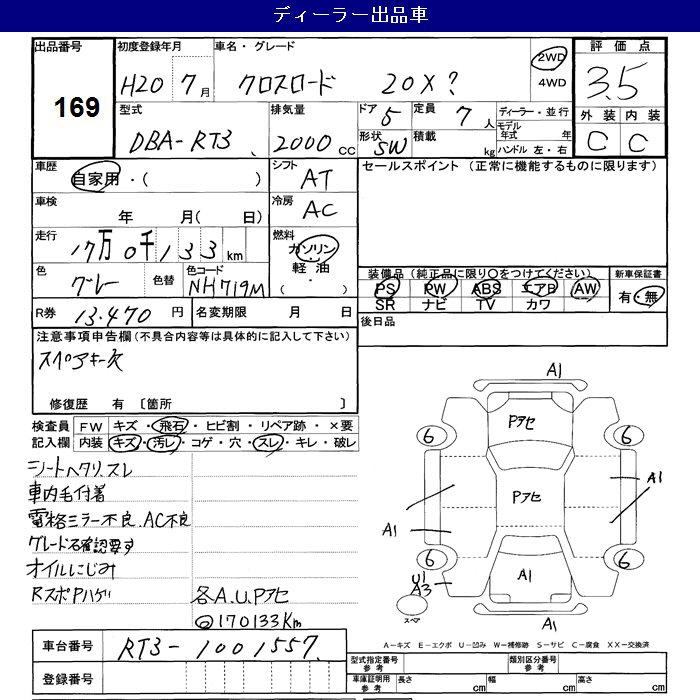 ディーラー出品車
出品番号 169
初度登録年月 H20 7月
車名・グレード クロスロード 20X?
2WD
4WD
評価点 3.5
外装 内装
C C
型式 DBA-RT3
排気量 2000 cc
ドア 5
形状 SW
定員 7人
積載 kg
ディーラー・並行
モデル年式 年
ハンドル 左・右
車歴 自家用・( )
シフト AT
セールスポイント (正常に機能するものに限ります)
車検 年 月( 日)
冷房 AC
走行 17万0千133km
燃料 ガソリン
軽油
( ・ )
色 グレー 色替
色コード NH719M
装備品(純正品に限り○をつけてください)
PS PW ABS エアB AW
SR ナビ TV カワ
新車保証書
有・無
R券 13.470円
名変期限 月 日
後日品
注意事項申告欄(不具合内容等は具体的に記入して下さい)
スペアキー欠
修復歴 有 [箇所 ]
検査員 FW キズ・飛石・ヒビ割・リペア跡・×要
記入欄 内装 キズ・汚レ・コゲ・穴・スレ・キレ・破レ
シートヘタリ.スレ
車内毛付着
電格ミラー不良.AC不良
グレード名確認要す
オイルにじみ
RスポPハゲ
各A.U.Pアセ
◎170133Km
A1
Pアセ
6 6
Pアセ
A1
A1
6 6
U1
A3
A1
スペア
A1
A-キズ E-エクボ U-凹み W-補修跡 S-サビ C-腐食 XX-交換済
車台番号 RT3-1001557
登録番号
型式指定番号 参考
類別区分番号 参考
車庫証明用 参考
長さ cm 幅 cm 高さ cm